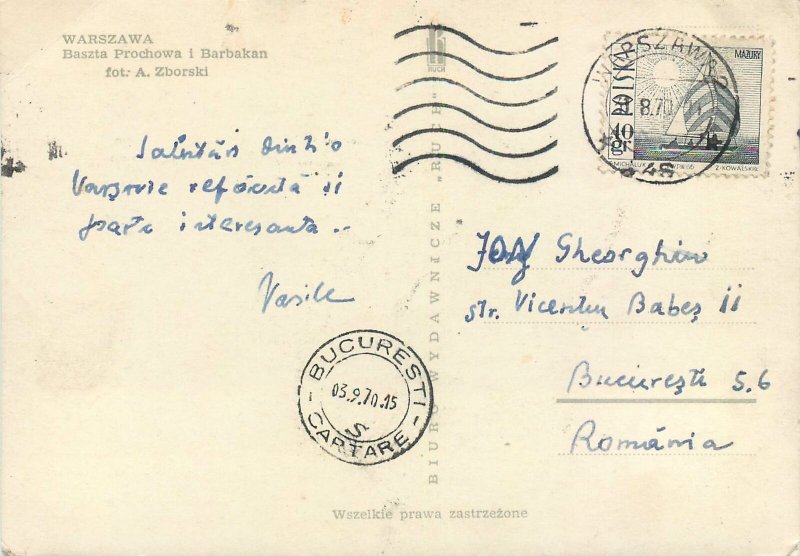 WARSZAWA
Baszta Prochowa i Barbakan
fot: A. Zborski
RUCH
Salutări dintr-o
Varșovie refăcută și
foarte interesantă..
Vasile
BIURO WYDAWNICZE „RUCH"
WARSZAWA 2
8.70
48
POLSKA
MAZURY
40 gr
Z. KOWALSKI
ION Gheorghiu
str. Vicențiu Babeș 11
București S.6
România
BUCURESTI
03.9.70.15
CARTARE
Wszelkie prawa zastrzeżone